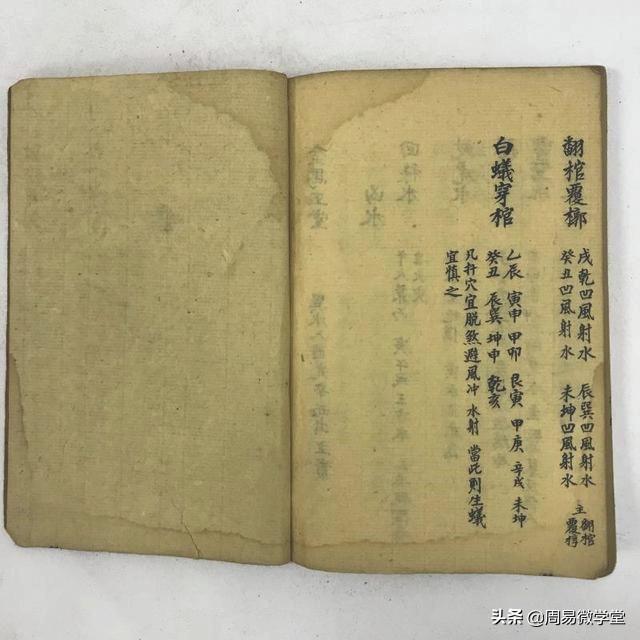 翻棺覆槨
戌乾凹風射水 辰巽凹風射水
癸丑凹風射水 未坤凹風射水
主翻棺
覆椁
白蟻穿棺
乙辰 寅申 甲卯 艮寅 甲庚 辛戌 未坤
癸丑 辰巽 坤申 乾亥
凡扦穴宜脫煞避風冲 水射 當此則生蟻
宜慎之
头条 @周易微学堂